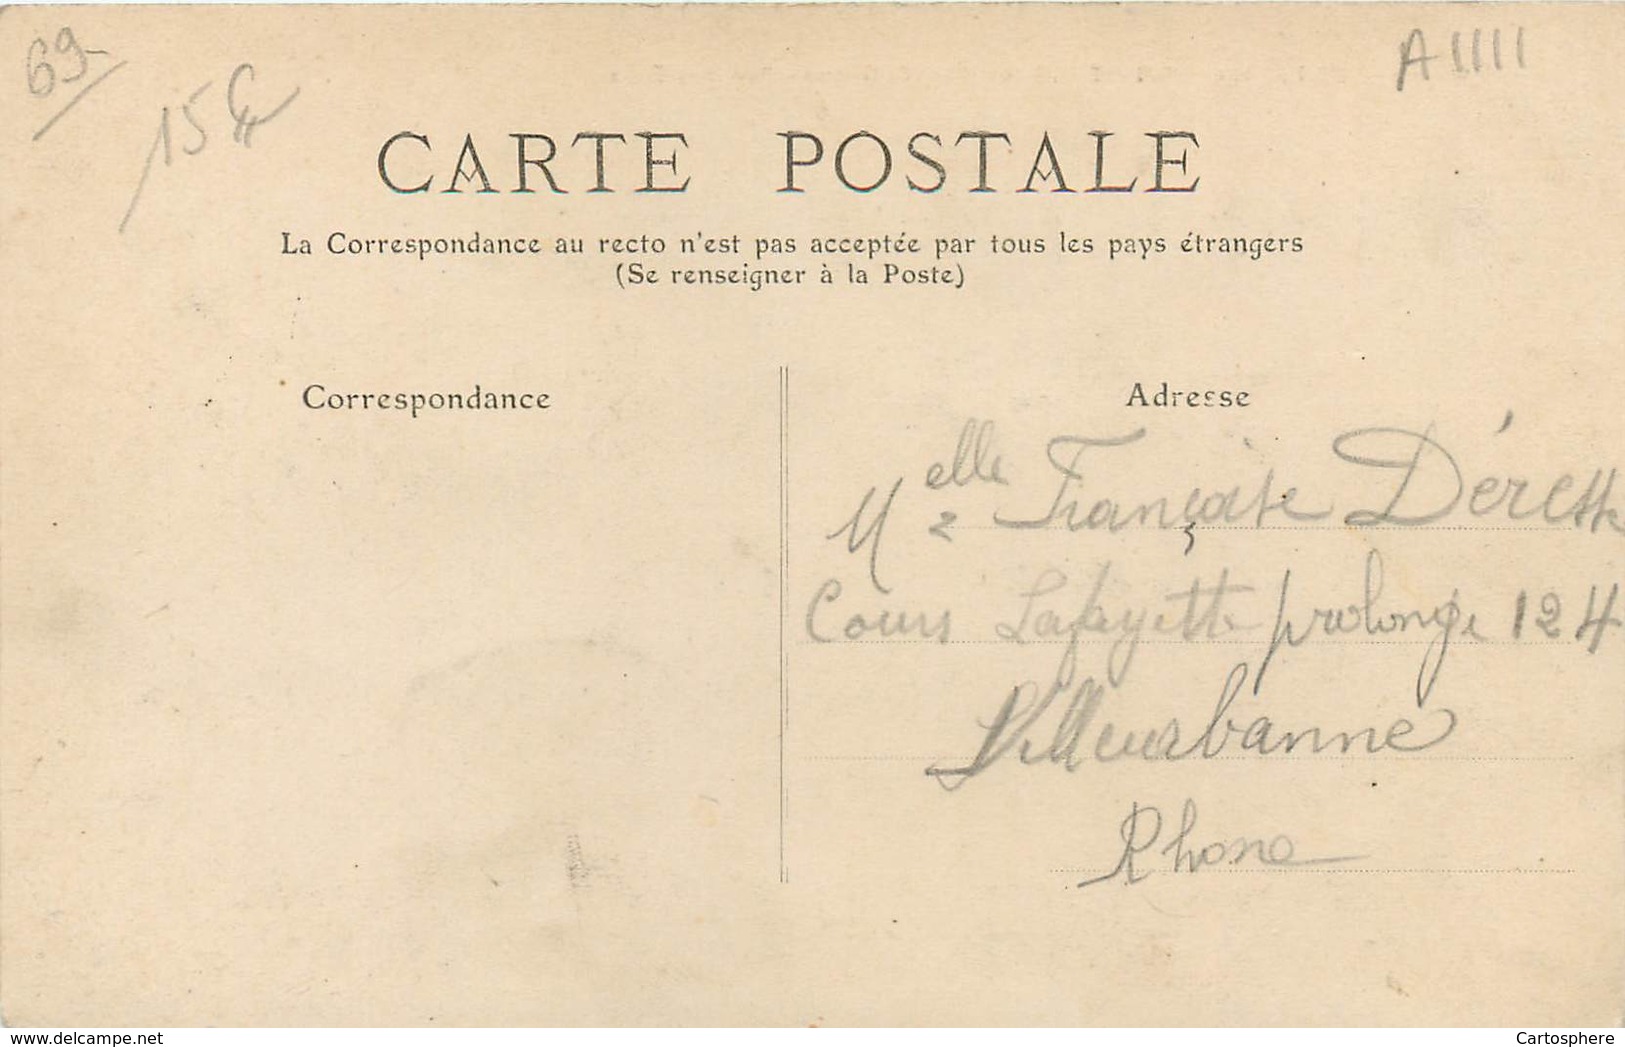 69-
15€
A1111
CARTE POSTALE
La Correspondance au recto n'est pas acceptée par tous les pays étrangers
(Se renseigner à la Poste)
Correspondance
Adresse
Melle Françoise
Cours Lafayette prolongé 124
Villeurbanne
Rhone
www.delcampe.net
Cartosphere